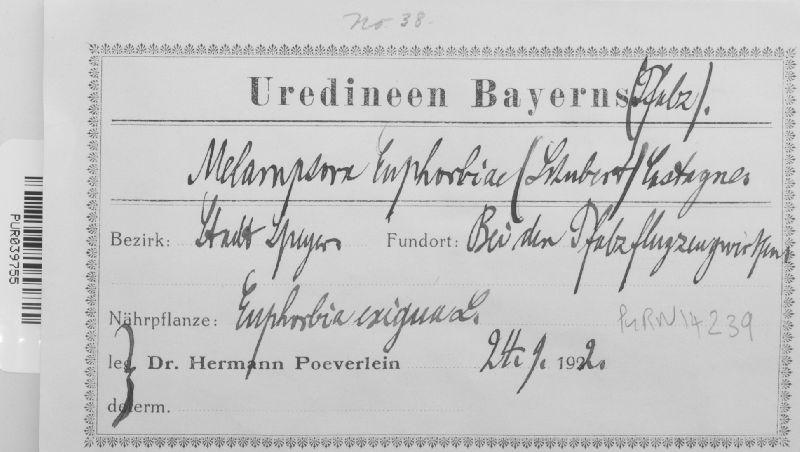 No 38.
Uredineen Bayerns (Pfalz).
Melampsora Euphorbiae (Schubert) Castagne.
Bezirk: Stadt Speyer. Fundort: Bei den
Nährpflanze: Euphorbia exigua L.
leg. Dr. Hermann Poeverlein 1922.
determ.
PUR039755